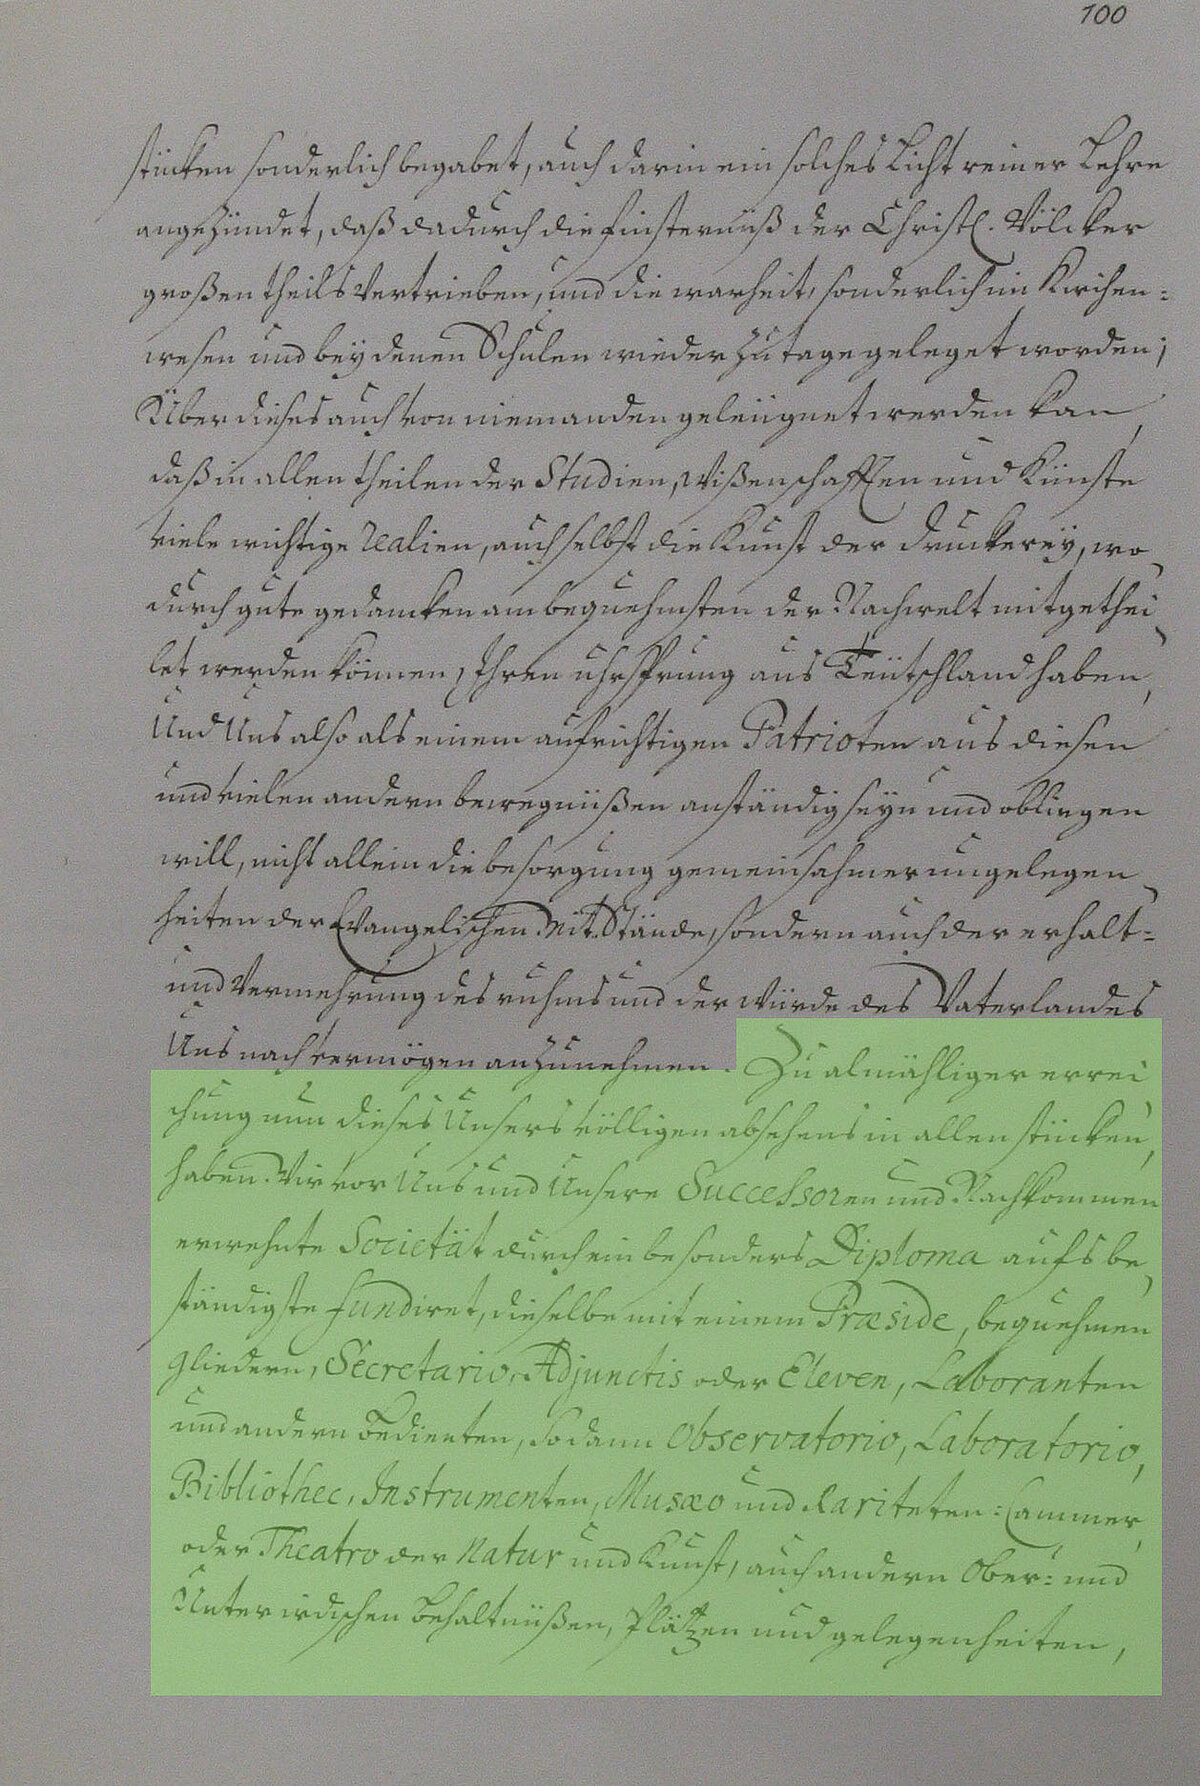 100
stücken sonderlich begabet, auch darin ein solches Licht reiner Lehre
angezündet, daß dadurch die finsternüß der Christl. Völcker
großen theils vertrieben, und die warheit, sonderlich im Kirchen=
wesen und bey denen Schulen wieder zu tage geleget worden;
Über dieses auch von niemanden geleügnet werden kan,
daß in allen theilen der Studien, Wißenschafften und Künste
viele wichtige realien, auch selbst die Kunst der druckerey, wo
durch gute gedancken am bequehmsten der Nachwelt mitgethei
let werden können, Ihren uhrsprung aus Teütschland haben,
Und Uns also als einem aufrichtigen Patrioten aus diesen
und vielen andern bewegnüßen anständig seyn und obliegen
will, nicht allein die besorgung gemeinsahmer angelegen
heiten der Evangelischen Mit-Stände, sondern auch der erhalt=
und Vermehrung des ruhms und der würde des Vaterlandes
Uns nach vermögen anzunehmen. Zu almähliger errei
chung nun dieses Unsers völligen absehens in allen stücken,
haben Wir vor Uns und Unsere Successoren und Nachkommen
erwehnte Societät durch ein besonders Diploma aufs be
ständigste fundiret, dieselbe mit einem Præside, bequehmen
gliedern, Secretario, Adjunctis oder Eleven, Laboranten
und andern Bedienten, sodann Observatorio, Laboratorio,
Bibliothec, Instrumenten, Musæo und Rariteten=Cammer,
oder Theatro der Natur und Kunst, auch andern Ober= und
Unterirdischen behaltnüßen, Plätzen und gelegenheiten,